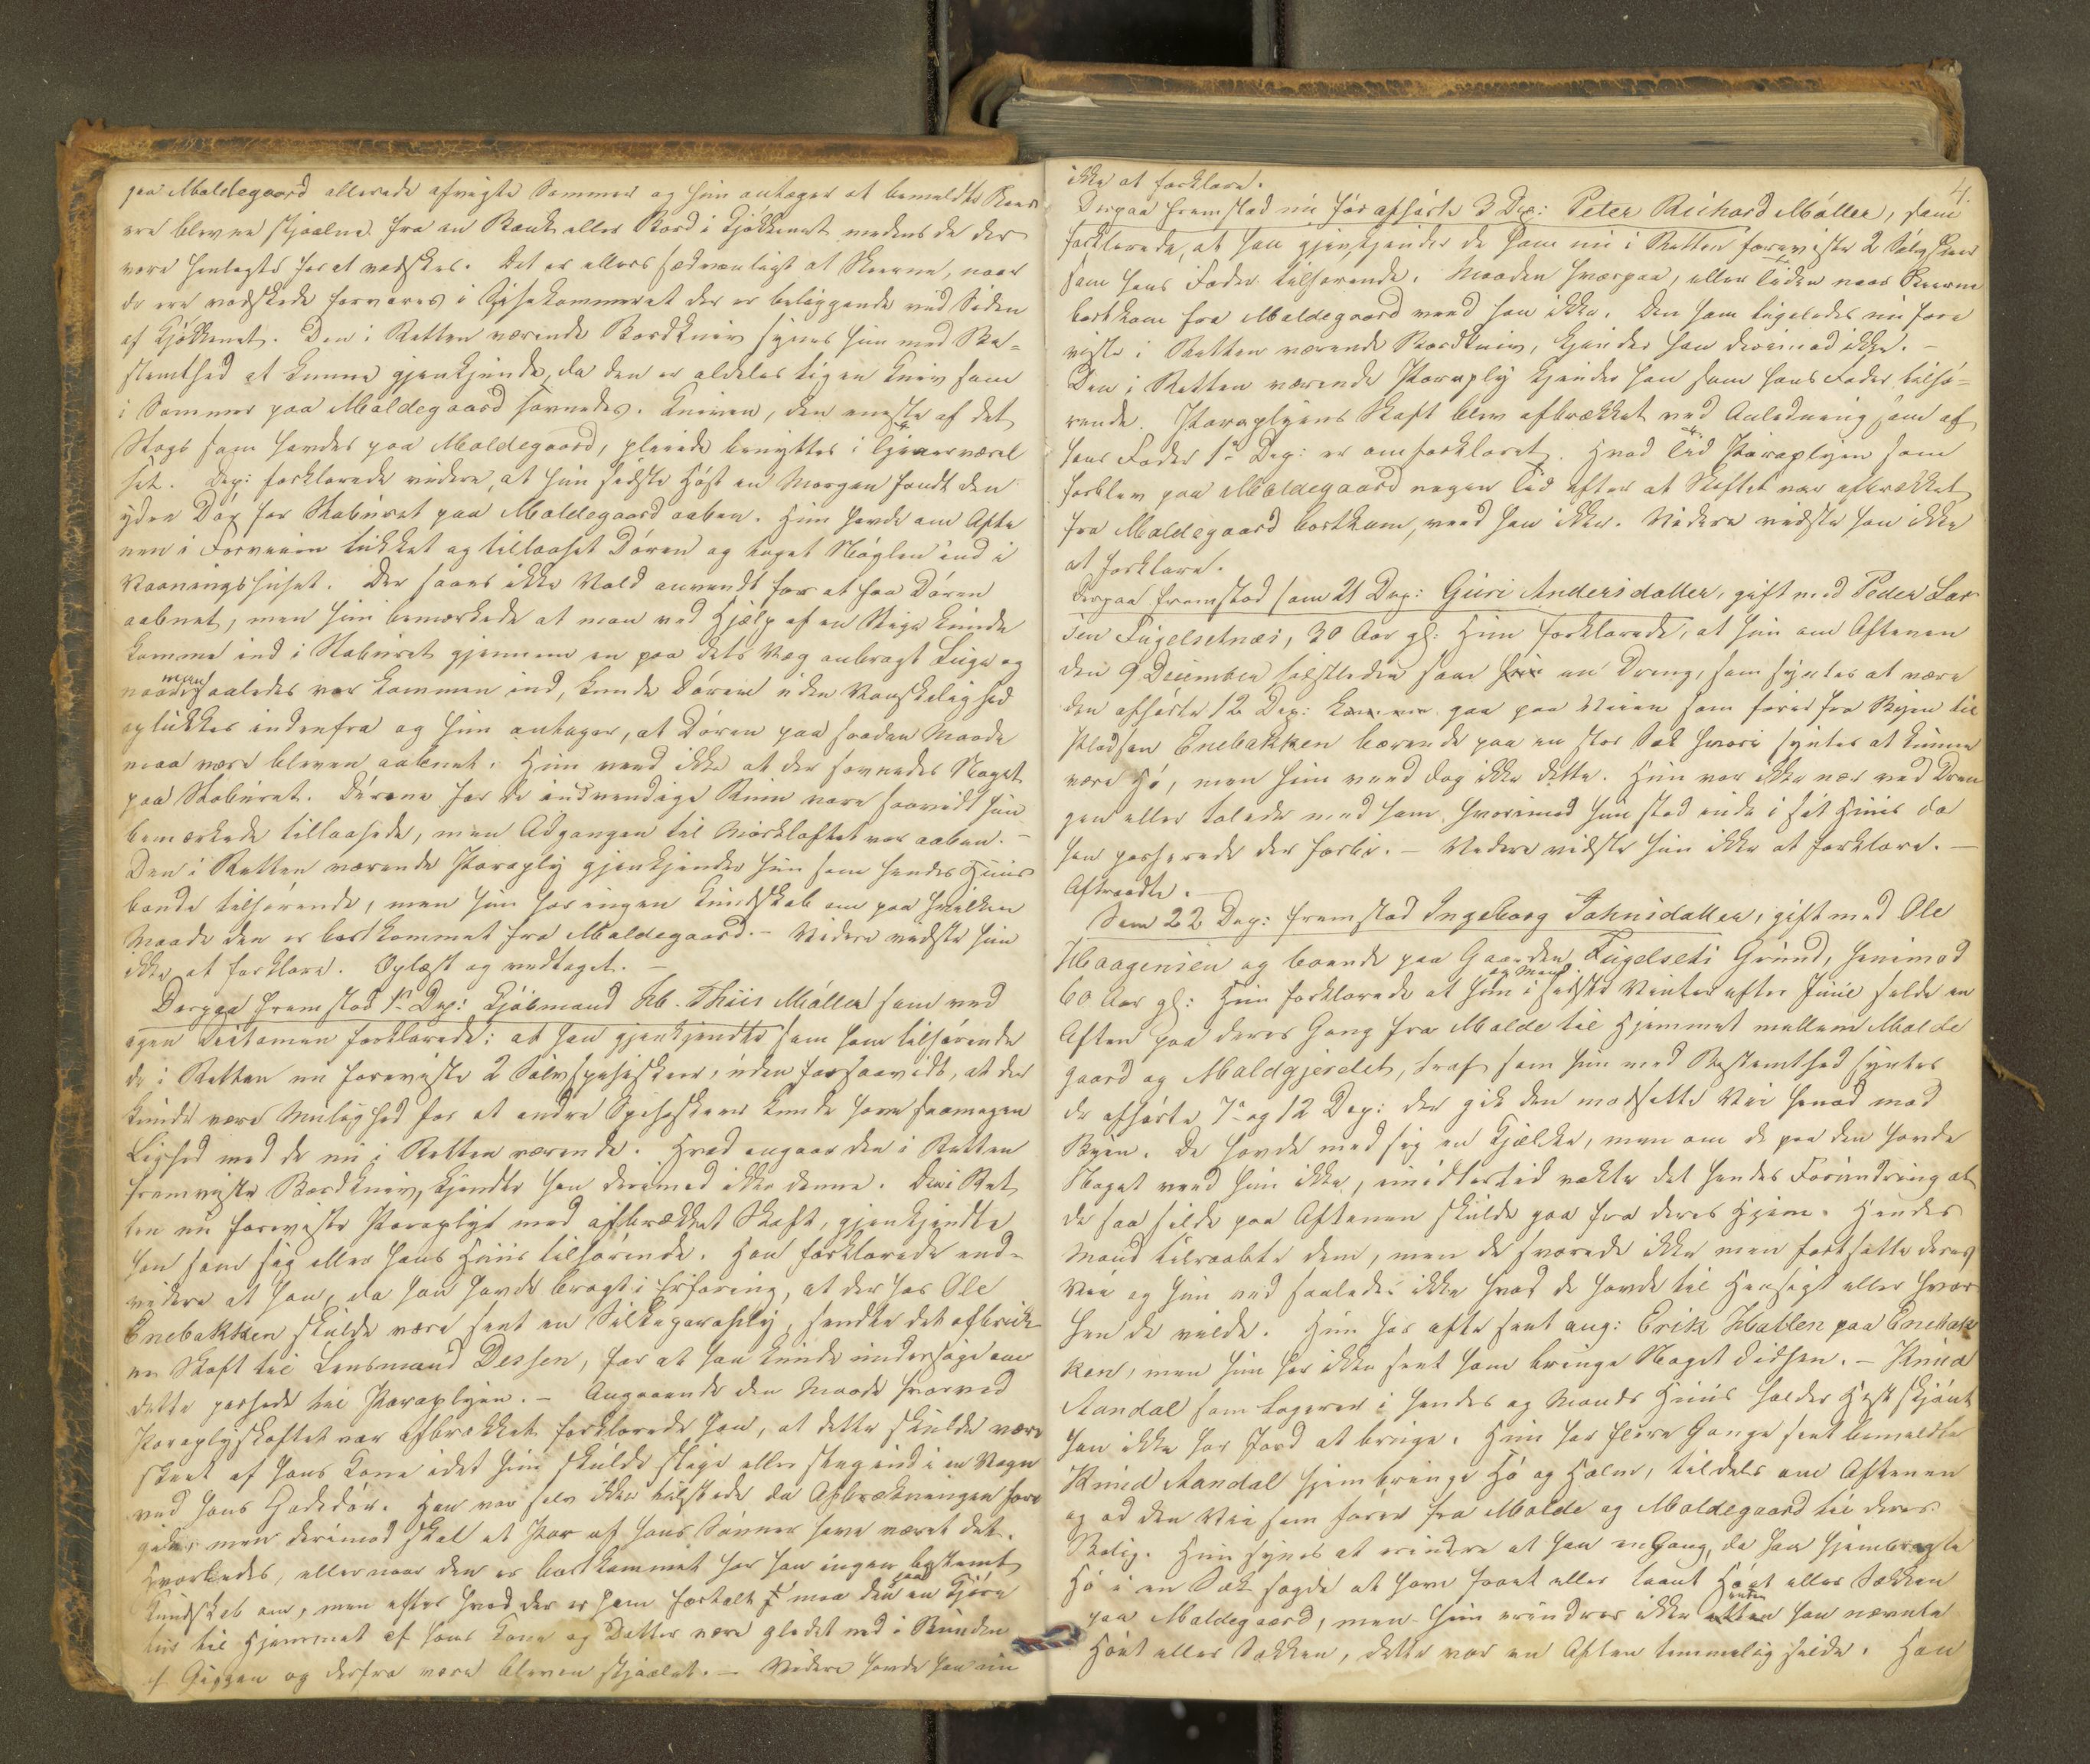 paa Moldegaard allerede afvigte Sommer og hun antager at bemeldte Skeer
ere blevne stjaalne fra en Bænk eller Bord i Kjøkkenet medens de der
vare henlagte for at vadskes. Det er ellers sædvanligt at Skeerne, naar
de ere vadskede forvares i Spisekammeret der er beliggende ved Siden
af Kjøkkenet. Den i Retten værende Bordkniv synes hun med Be-
stemthed at kunne gjenkjende, da den er aldeles ligen Kniv som
i Sommer paa Moldegaard savnedes. Kniven, den eneste af det
Slags som havdes paa Moldegaard, pleiede benyttes i Tjenerværel
set. Dep: forklarede videre, at hun sidste Høst en Morgen fandt den
ydre Dør for Stabúret paa Moldegaard aaben. Hun havde om Afte
nen i Forveien lukket og tillaaset Døren og taget Nøglen ind i
Vaaningshuset. Der saaes ikke Vold anvendt for at faa Døren
aabnet, men hun bemærkede at man ved Hjælp af en Stige kunde
komme ind i Stabúret gjennem en paa dets Væg anbragt Luge og
naar man saaledes var kommen ind, kunde Døren uden Vanskelighed
oplukkes indenfra og hun antager, at Døren paa saadan Maade
maa være bleven aabnet. Hun veed ikke at der savnedes Noget
paa Stabúret. Dørene for de indvendige Rum vare saavidt hun
bemærkede tillaasede, men Adgangen til Mørkloftet var aaben. –
Den i Retten værende Paraply gjenkjender hun som hendes Huus
bonde tilhørende, men hun har ingen Kundskab om paa hvilken
Maade den er bortkommet fra Moldegaard. – Videre vidste hun
ikke at forklare. Oplæst og vedtaget. –
Derpaa fremstod 1ste Dep: Kjøbmand Hb. Thiis Møller som ved
egen forklarede: at han gjenkjendte som ham tilhørende
de i Retten nu foreviste 2 Sølvspiseskeer, uden forsaavidt, at der
kunde være Mulighed for at andre Spiseskeer kunde have saamegen
Lighed med de nu i Retten værende. Hvad angaar den i Retten
fremviste Bordkniv, kjendte han derimod ikke denne. Den i Ret
ten nu foreviste Paraply med afbrækket Skaft, gjenkjendte
han som sig eller hans Huus tilhørende. Han forklarede end-
videre at han, da han havde bragt i Erfaring, at der hos Ole
Enebakken skulde være seet en Silkeparaply, sendte det afbrækk
ne Skaft til Lensmand Dessen, for at han kunde undersøge om
dette passede til Paraplyen. – Angaaende den Maade hvorved
Paraplyskaftet var afbrækket forklarede han, at dette skulde være
skeet af hans Kone idet hun skulde stige eller steg ind i en Vogn
ved hans Gadedør. Han var selv ikke tilstede da Afbrækningen fore
gik, men derimod skal et Par af hans Sønner have været det.
Hvorledes, eller naar den er bortkommet har han ingen bestemt
Kundskab om, men efter hvad der er ham fortalt maa den paa en Kjøre
tur til Hjemmet af hans Kone og Datter være gledet ned i Bunden
af Giggen og derfra være bleven stjaalet. – Videre havde han nu
4.
ikke at forklare.
Derpaa fremstod nu før afhørte 3 Dep: Peter Richard Møller, som
forklarede, at han gjenkjender de ham nu i Retten foreviste 2 Sølvskeer
som hans Fader tilhørende. Maaden hvorpaa, eller Tiden naar Skeerne
bortkom fra Moldegaard veed han ikke. Den ham ligeledes nu fore
viste i Retten værende Bordkniv, kjender han derimod ikke. –
Den i Retten værende Paraply kjender han som hans Fader tilhø-
rende. Paraplyens Skaft blev afbrækket ved Anledning som af
hans Fader 1ste Dep: er omforklaret. Hvad Tid Paraplyen som
forblev paa Moldegaard nogen Tid efter at Skaftet var afbrækket
fra Moldegaard bortkom, veed han ikke. Videre vidste han ikke
at forklare.
Derpaa fremstod som 21 Dep: Guri Andersdatter, gift med Peder Lar
sen Fugelsetnæs, 30 Aar gl: Hun forklarede, at hun om Aftenen
den 9 December sidstleden saae en Dreng, som syntes at være
den afhørte 12 Dep: gaa paa Veien som fører fra Byen til
Pladsen Enebakken bærende paa en stor Sæk hvori syntes at kunne
være Hø, men hun veed dog ikke dette. Hun var ikke nær ved Dren
gen eller talede med ham, hvorimod hun stod inde i sit Huus da
han passerede der forbi. – Videre vidste hun ikke at forklare. –
Aftraadte. –
Som 22 Dep: fremstod Ingeborg Johnsdatter, gift med Ole
Haagensen og boende paa Gaarden Fugelsets Grund, henimod
60 Aar gl: Hun forklarede at hun og Mand i sidste Vinter efter Juul silde en
Aften paa deres Gang fra Molde til Hjemmet mellem Molde
gaard og Moldgjerdet, traf som hun med Bestemthed syntes
de afhørte 7de og 12 Dep: der gik den modsatte Vei henad mod
Byen. De havde med sig en Kjælke, men om de paa den havde
Noget veed hun ikke, imidlertid vakte det hendes Forundring at
de saa silde paa Aftenen skulde gaa fra deres Hjem. Hendes
Mand tilraabte dem, men de svarede ikke men fortsatte deres
Vei og hun ved saaledes ikke hvad de havde til Hensigt eller hvor
hen de vilde. Hun har ofte seet ang: Erik Hallen paa Enebak
ken, men hun har ikke seet ham bringe Noget didhen. – Knud
Aandal som logerer i hendes og Mands Huus holder Hest skjønt
han ikke har Jord at bruge. Hun har flere Gange seet bemeldte
Knud Aandal hjembringe Hø og Halm, tildels om Aftenen
og ad den Vei som fører fra Molde og Moldegaard til deres
Bolig. Hun synes at erindre at han engang, da han hjembragte
Hø i en Sæk sagde at have faaet eller laant Høet eller Sækken
paa Moldegaard, men hun erindrer ikke enten han nævnte
Høet eller Sækken, dette var en Aften temmelig silde. Han